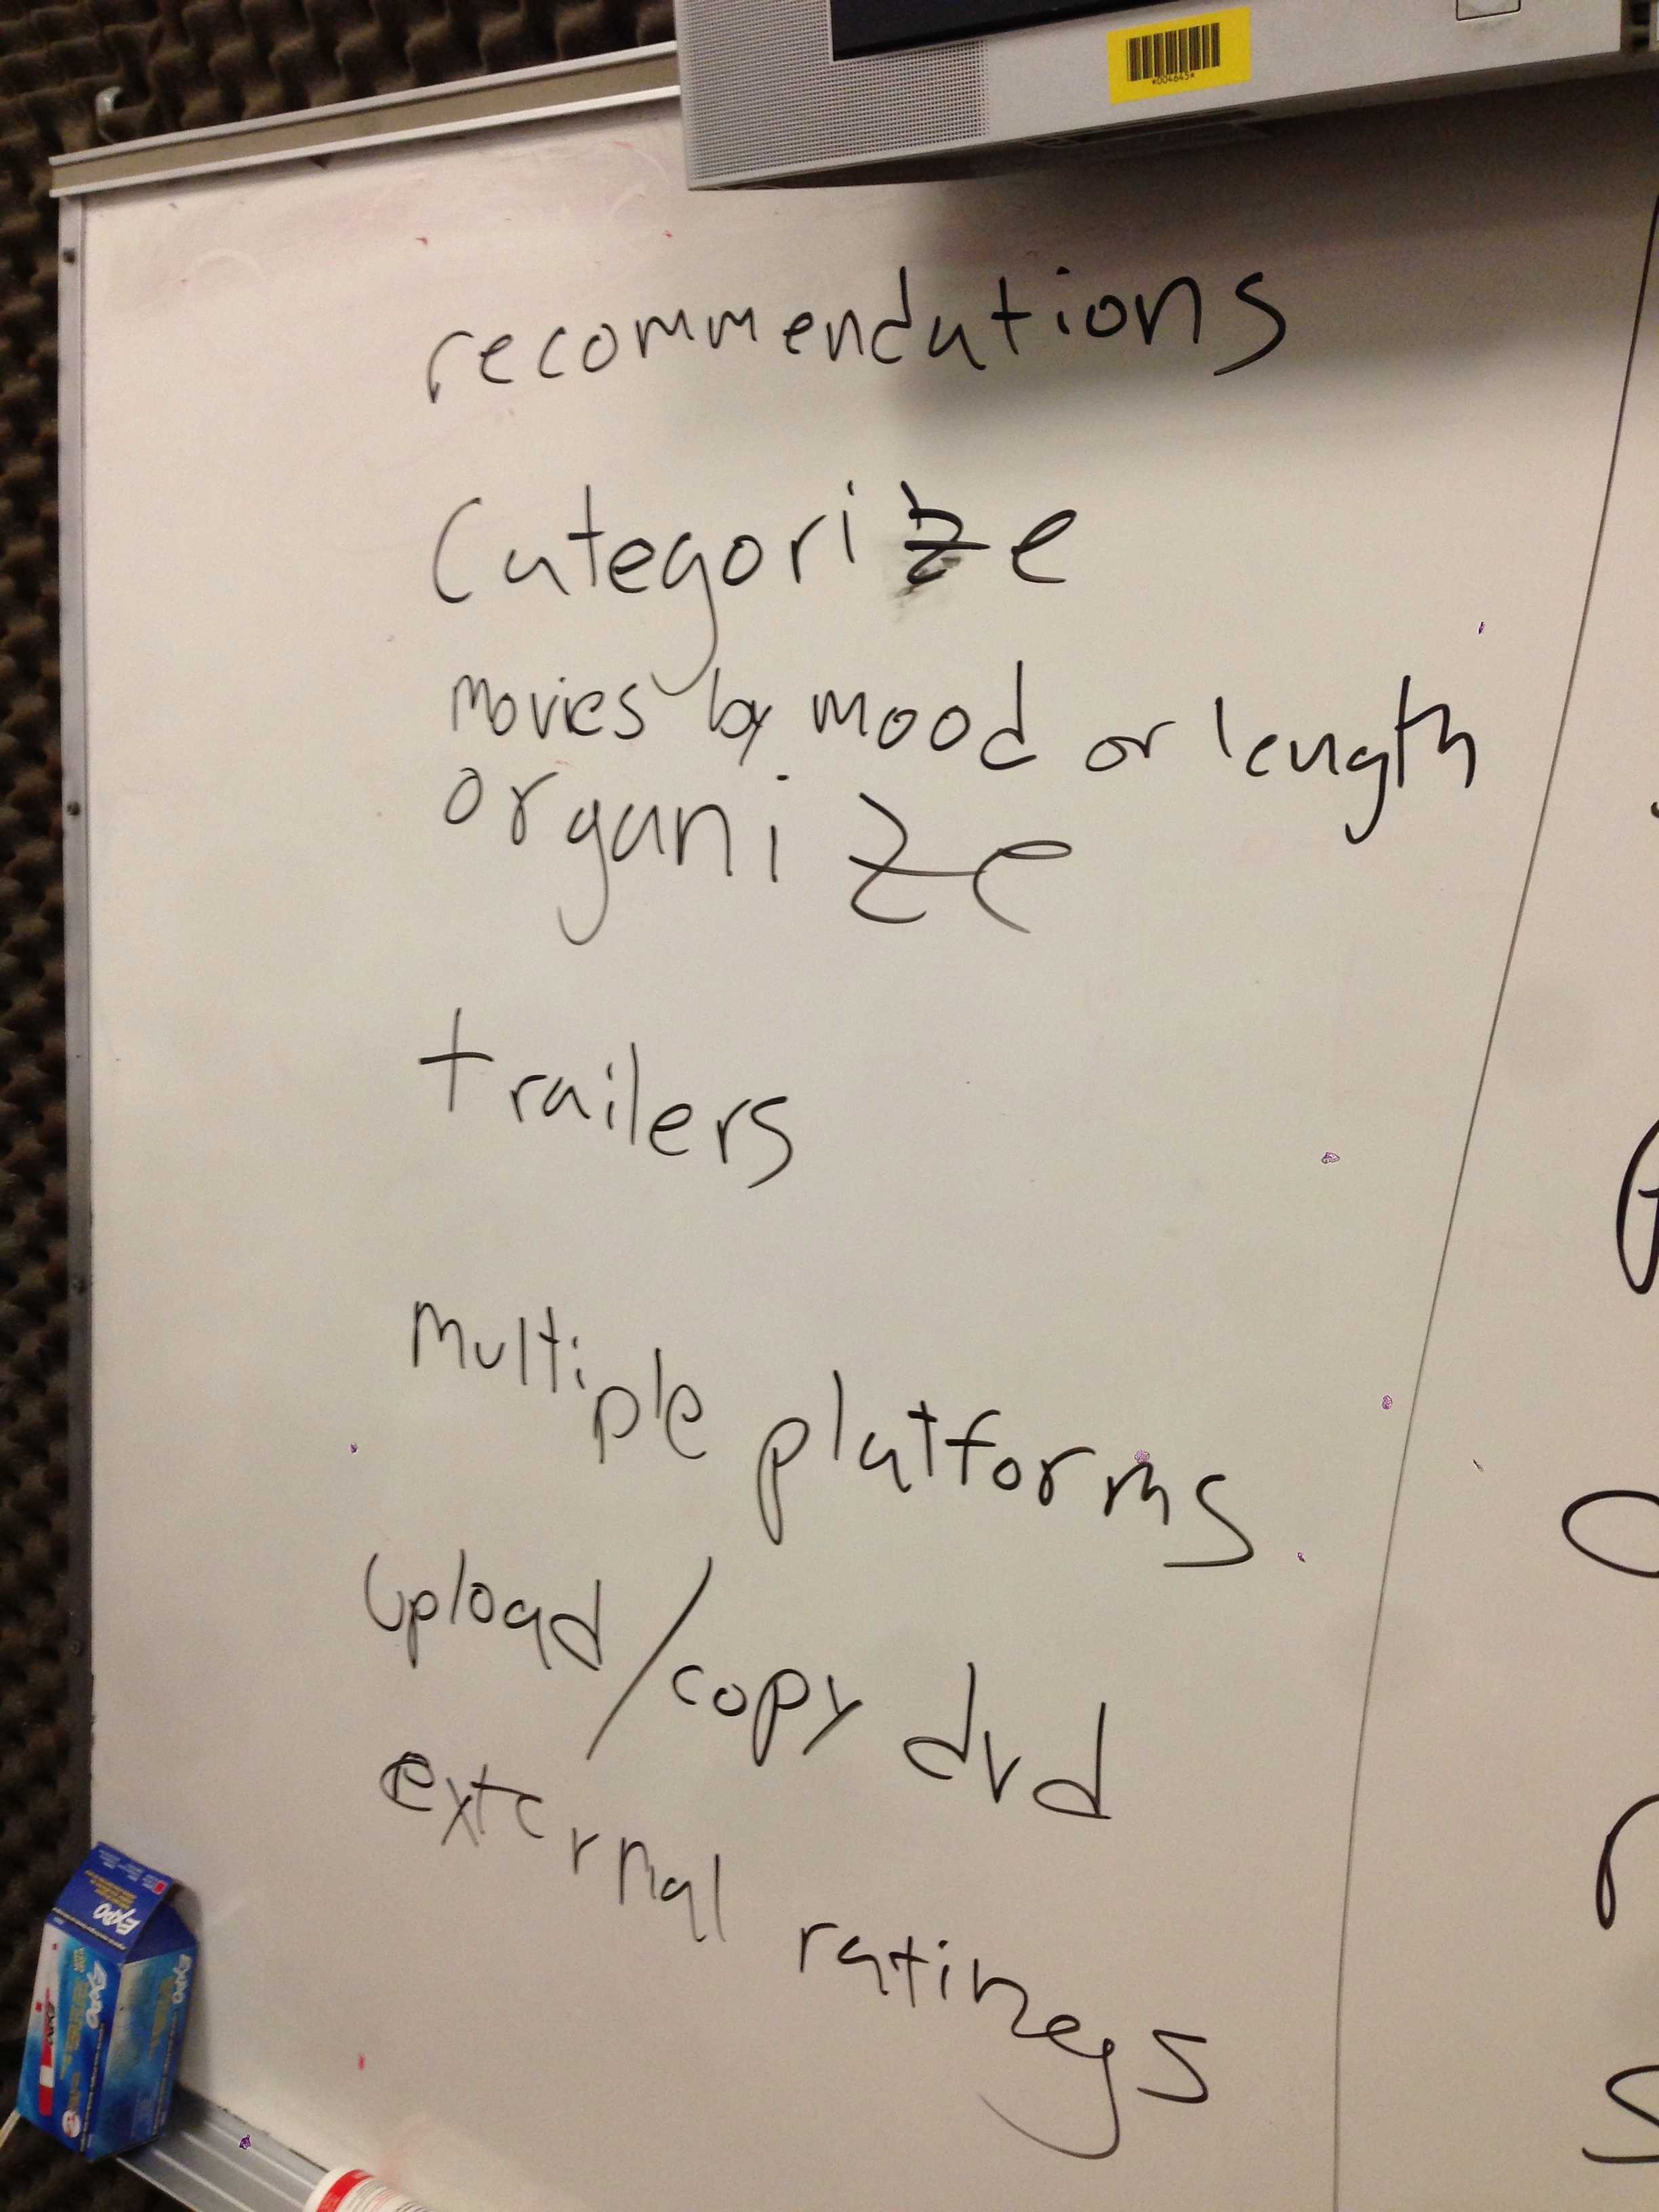 *004645*
recommendations
Categorize
movies by mood or length
organize
trailers
multiple platforms
upload/copy dvd
external ratings
EXPO
EXPO
EXPO